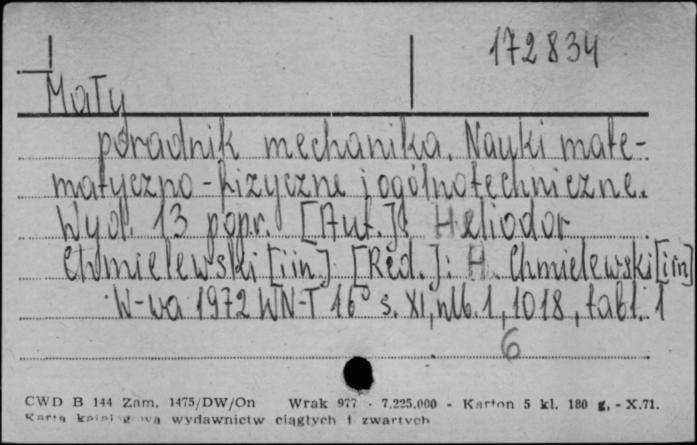 172834
Mały
poradnik mechanika. Nauki mate-
matyczno-fizyczne i ogólnotechniczne.
Wyd. 13 popr. [Aut.]: Heliodor
Chmielewski [iin.] [Red.]: H. Chmielewski [iin]
W-wa 1972 WN-T 16° s. XI, nlb. 1, 1018, tabl. 1
6
CWD B 144 Zam. 1475/DW/On Wrak 977 - 7.225.000 - Karton 5 kl. 180 g, - X.71.
Karta katalogowa wydawnictw ciągłych i zwartych